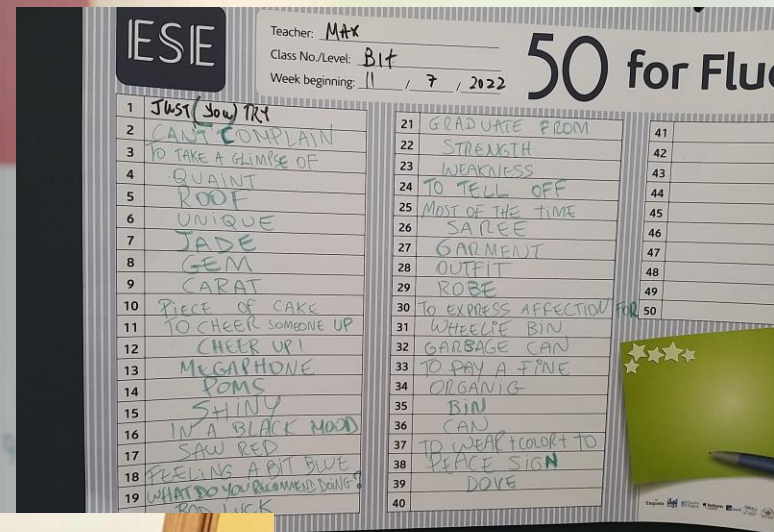 ESE
Teacher: MAX
Class No./Level: B1+
Week beginning: 11 / 7 / 2022
50 for Flue
1 JUST (you) TRY
2 CAN'T COMPLAIN
3 TO TAKE A GLIMPSE OF
4 QUAINT
5 ROOF
6 UNIQUE
7 JADE
8 GEM
9 CARAT
10 PIECE OF CAKE
11 TO CHEER SOMEONE UP
12 CHEER UP!
13 MEGAPHONE
14 POMS
15 SHINY
16 IN A BLACK MOOD
17 SAW RED
18 FEELING A BIT BLUE
19 WHAT DO YOU RECOMMEND DOING?
BAD LUCK
21 GRADUATE FROM
22 STRENGTH
23 WEAKNESS
24 TO TELL OFF
25 MOST OF THE TIME
26 SAREE
27 GARMENT
28 OUTFIT
29 ROBE
30 TO EXPRESS AFFECTION FOR
31 WHEELIE BIN
32 GARBAGE CAN
33 TO PAY A FINE
34 ORGANIG
35 BIN
36 CAN
37 TO WEAR + COLOR + TO
38 PEACE SIGN
39 DOVE
40
41
42
43
44
45
46
47
48
49
50